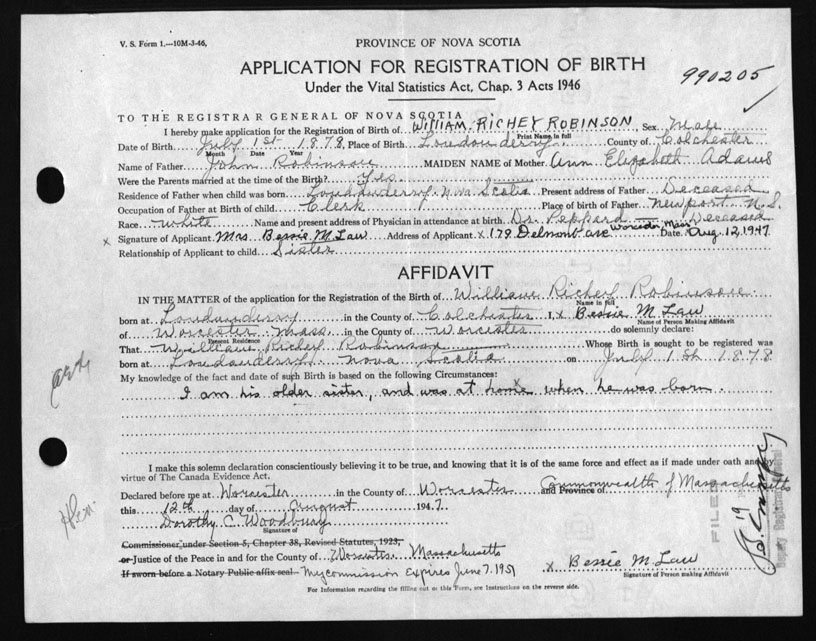 V. S. Form 1.—10M-3-46,
PROVINCE OF NOVA SCOTIA
APPLICATION FOR REGISTRATION OF BIRTH
990205
Under the Vital Statistics Act, Chap. 3 Acts 1946
TO THE REGISTRAR GENERAL OF NOVA SCOTIA
I hereby make application for the Registration of Birth of WILLIAM RICHEY ROBINSON, Sex Male
Print Name in full
Date of Birth July 1st 1878, Place of Birth Londonderry. County of Colchester
Month Date Year
Name of Father John Robinson MAIDEN NAME of Mother Ann Elizabeth Adams
Were the Parents married at the time of the Birth? Yes
Residence of Father when child was born Londonderry Nova Scotia Present address of Father Deceased
Occupation of Father at Birth of child Clerk Place of Birth of Father Newport N.S.
Race White Name and present address of Physician in attendance at birth Dr. Peppard — Deceased
x Signature of Applicant Mrs. Bessie M. Law Address of Applicant x 179 Delmont ave Worcester, Mass Date Aug. 12, 1947
Relationship of Applicant to child Sister
AFFIDAVIT
IN THE MATTER of the application for the Registration of Birth of William Richey Robinson
Name in full
born at Londonderry in the County of Colchester I, x Bessie M Law
Name of Person Making Affidavit
of Worcester Mass of Worcester do solemnly declare:
Present Residence
That William Richey Robinson Whose Birth is sought to be registered was
born at Londonderry Nova Scotia on July 1st 1878
My knowledge of the fact and date of such Birth is based on the following Circumstances:
I am his older sister, and was at home when he was born.
I make this solemn declaration conscientiously believing it to be true, and knowing that it is of the same force and effect as if made under oath and by
virtue of The Canada Evidence Act.
Declared before me at Worcester in the County of Worcester and Province of Commonwealth of Massachusetts
this 12th day of August 1947
Dorothy C. Woodbury
Signature of
Commissioner, under Section 5, Chapter 38, Revised Statutes, 1923,
or Justice of the Peace in and for the County of Worcester Massachusetts
x Bessie M Law
Signature of Person making Affidavit
If sworn before a Notary Public affix seal My commission Expires June 7, 1951
For Information regarding the filling out of this Form, see Instructions on the reverse side.
FILED
19
Deputy Registrar General